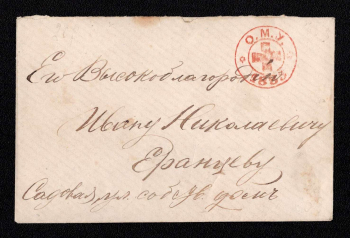 О.М.У.
Его Высокоблагородію
Ивану Николаевичу
Еранцеву
Садовая ул. собств. домъ